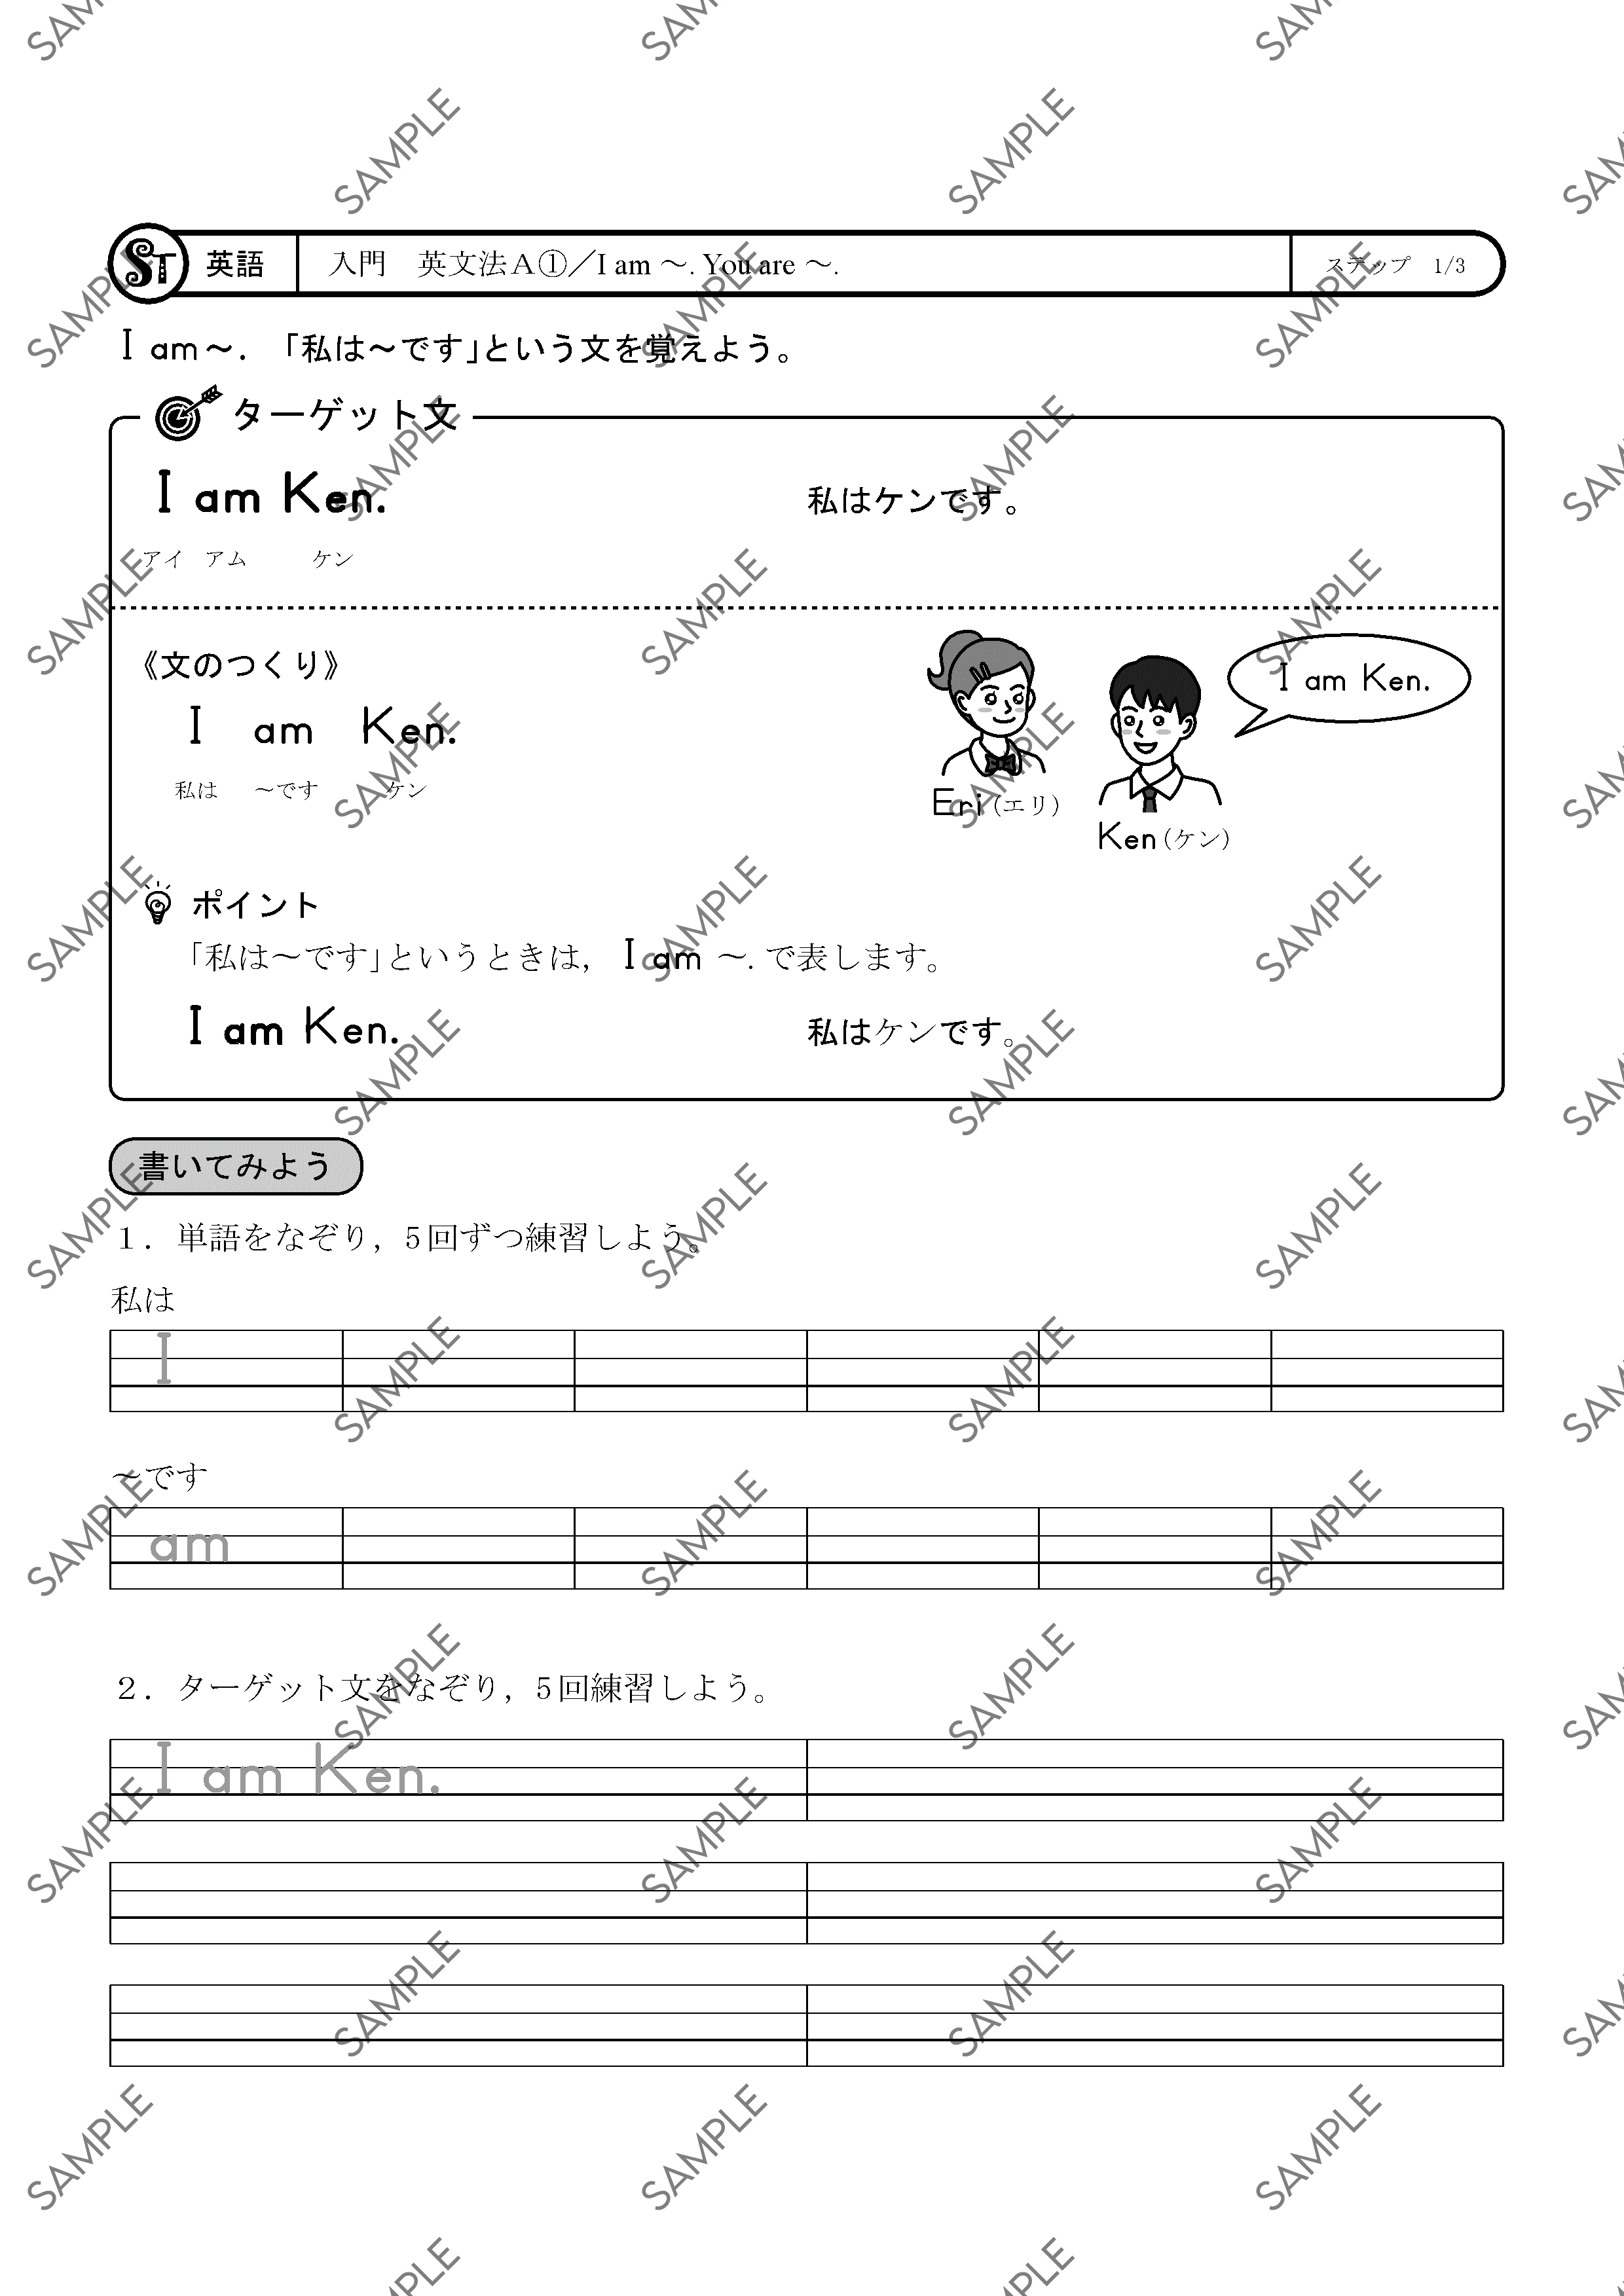 ST 英語 入門 英文法A①／I am ～. You are ～. ステップ 1/3
I am～. 「私は～です」という文を覚えよう。
ターゲット文
I am Ken. 私はケンです。
アイ アム ケン
《文のつくり》
I am Ken.
私は ～です ケン
I am Ken.
Eri（エリ）
Ken（ケン）
ポイント
「私は～です」というときは， I am ～. で表します。
I am Ken. 私はケンです。
書いてみよう
１．単語をなぞり，5回ずつ練習しよう。
私は
I
～です
am
２．ターゲット文をなぞり，5回練習しよう。
I am Ken.
SAMPLE